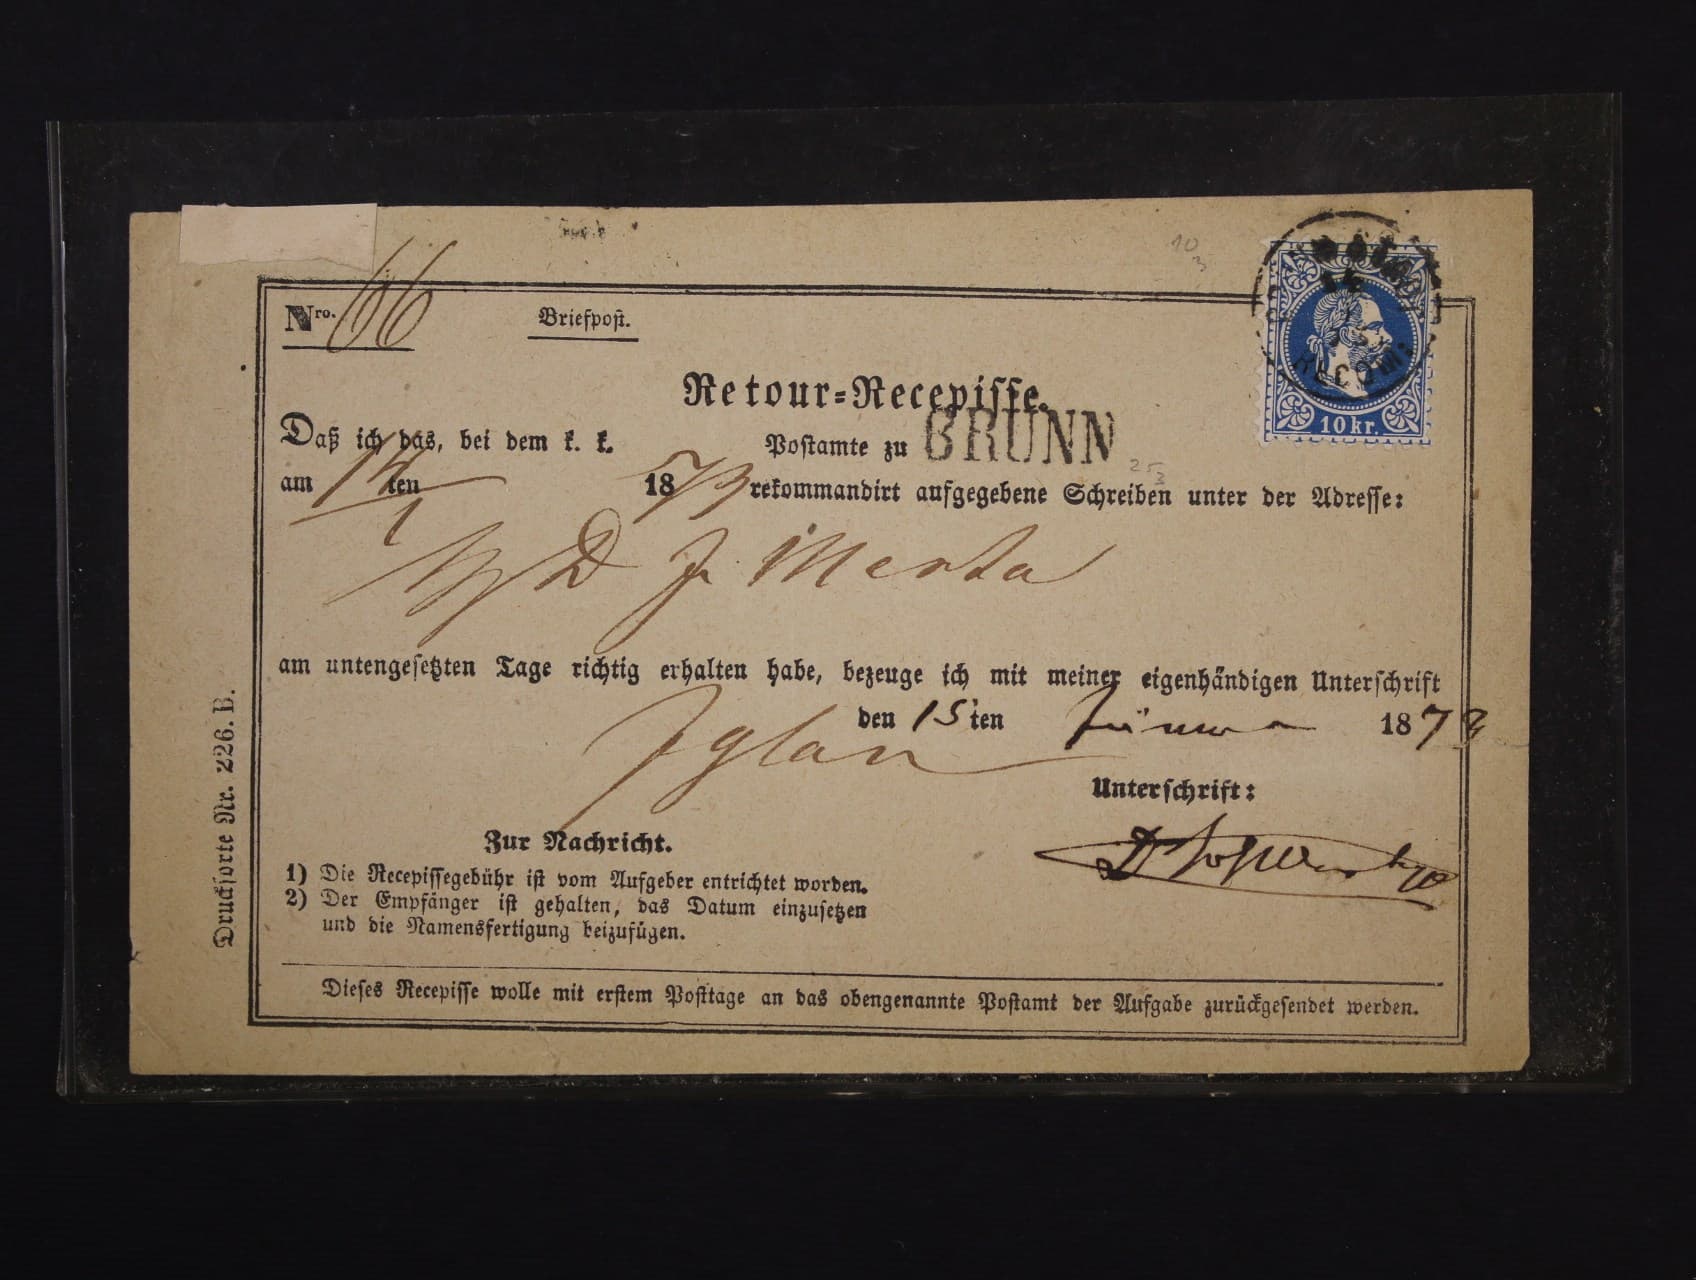 Nro. 66
Briefpost.
10 kr.
RECOM:
Retour-Recepisse.
Daß ich das, bei dem k. k. Postamte zu BRÜNN
am 14/1 ten 1873 rekommandirt aufgegebene Schreiben unter der Adresse:
D J. Merta
am untengesetzten Tage richtig erhalten habe, bezeuge ich mit meiner eigenhändigen Unterschrift
Iglau den 15ten 1873
Unterschrift:
Zur Nachricht.
1) Die Recepissegebühr ist vom Aufgeber entrichtet worden.
2) Der Empfänger ist gehalten, das Datum einzusetzen
und die Namensfertigung beizufügen.
Dieses Recepisse wolle mit erstem Posttage an das obengenannte Postamt der Aufgabe zurückgesendet werden.
Drucksorte Nr. 226. B.